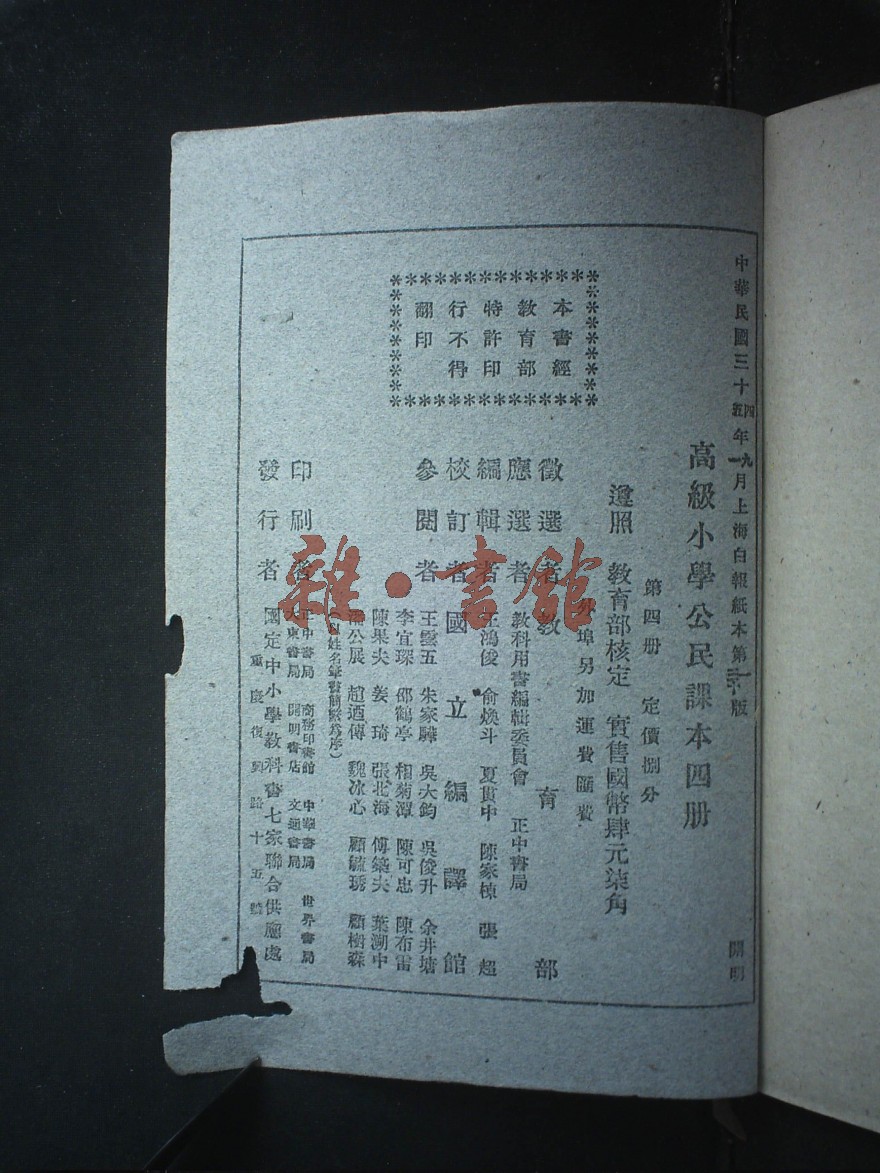 中華民國三十四年九月上海白報紙本第一版
五 一 二十
高級小學公民課本四册
第四册 定價捌分
遵照 教育部核定 實售國幣肆元柒角
外埠另加運費匯費
本書經
教育部
特許印
行不得
翻印
徵選者 教育部
應選者 教科用書編輯委員會 正中書局
編輯者 王鴻俊 俞煥斗 夏貫中 陳家棟 張超
校訂者 國立編譯館
參閱者 王雲五 朱家驊 吳大鈞 吳俊升 余井塘
李宜琛 邵鶴亭 相菊潭 陳可忠 陳布雷
陳果夫 姜琦 張北海 傅築夫 葉溯中
潘公展 趙迺傳 魏冰心 顧毓琇 顧樹森
(以姓名筆畫簡繁爲序)
印刷者 正中書局 商務印書館 中華書局 世界書局
大東書局 開明書店 文通書局
發行者 國定中小學教科書七家聯合供應處
重慶復興路十五號
開明
雜·書館